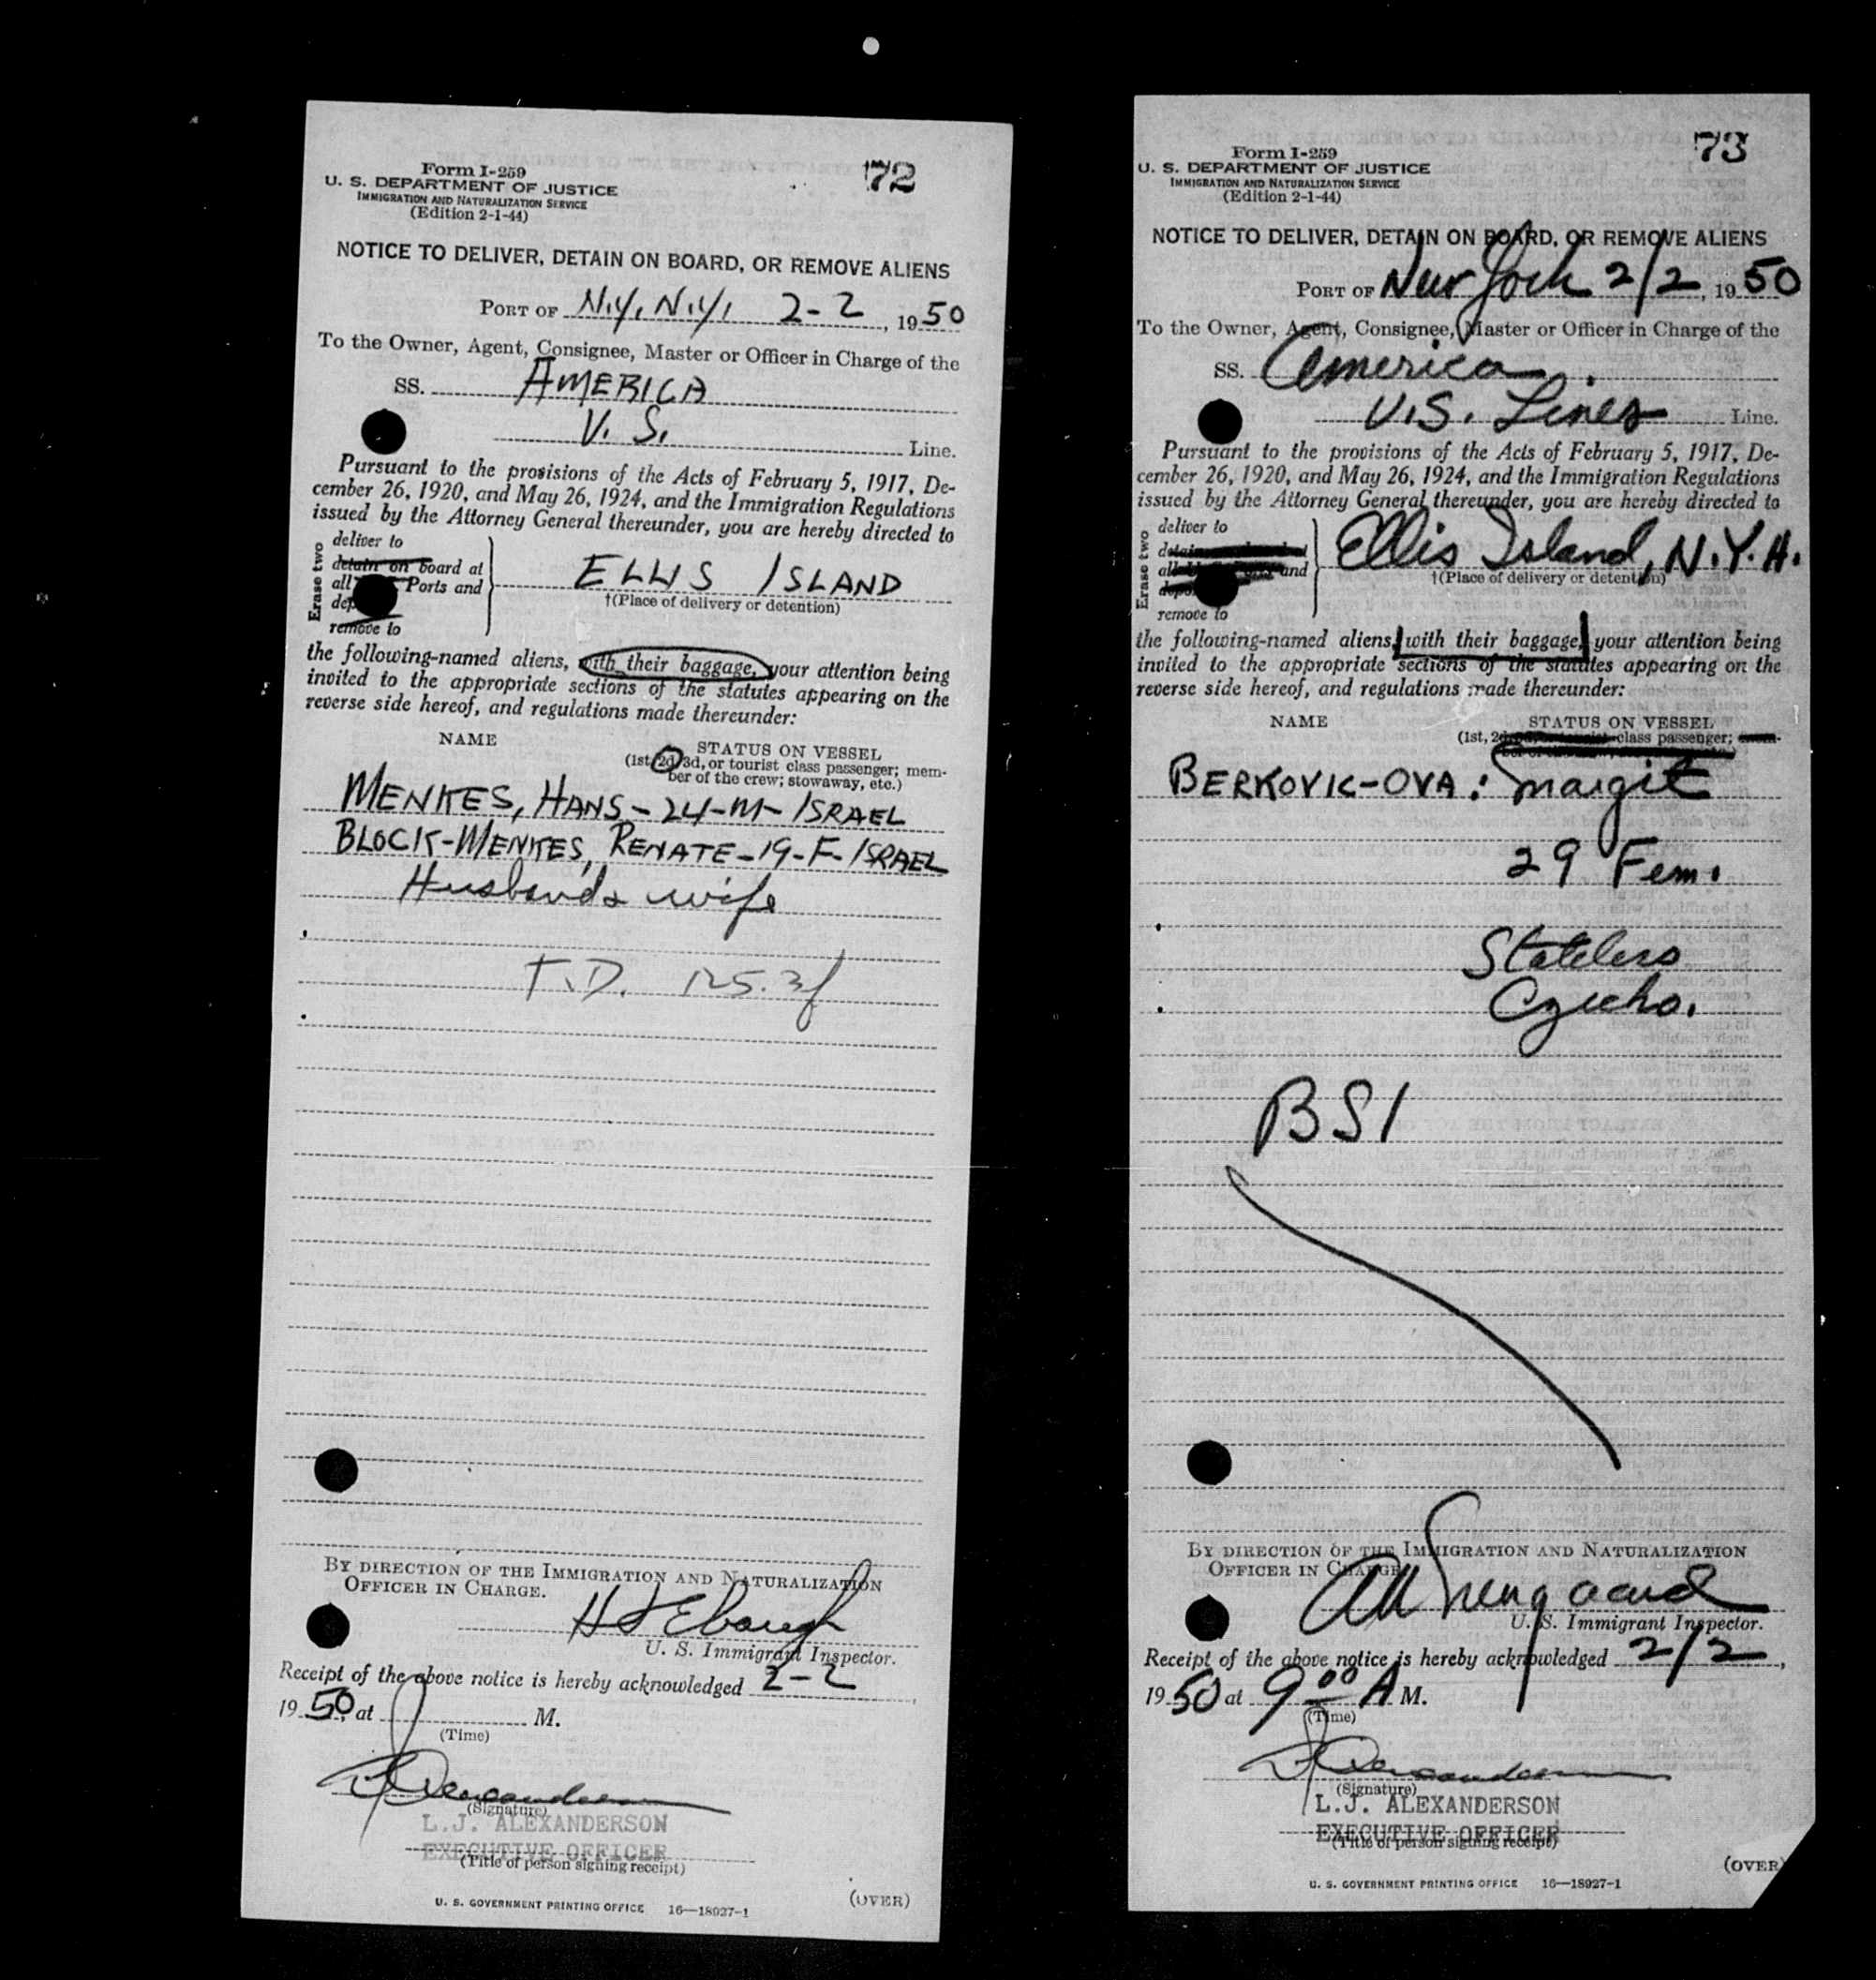 72
Form I-259
U. S. DEPARTMENT OF JUSTICE
IMMIGRATION AND NATURALIZATION SERVICE
(Edition 2-1-44)
NOTICE TO DELIVER, DETAIN ON BOARD, OR REMOVE ALIENS
PORT OF N.Y, N.Y, 2-2, 1950
To the Owner, Agent, Consignee, Master or Officer in Charge of the
SS. AMERICA
U. S. Line.
Pursuant to the provisions of the Acts of February 5, 1917, De-
cember 26, 1920, and May 26, 1924, and the Immigration Regulations
issued by the Attorney General thereunder, you are hereby directed to
Erase two
deliver to
detain on board at
all Ports and
remove to
ELLIS ISLAND
†(Place of delivery or detention)
the following-named aliens, with their baggage, your attention being
invited to the appropriate sections of the statutes appearing on the
reverse side hereof, and regulations made thereunder:
NAME STATUS ON VESSEL
(1st, 2d, 3d, or tourist class passenger; mem-
ber of the crew; stowaway, etc.)
MENKES, HANS - 24-M- ISRAEL
BLOCK-MENKES, RENATE - 19-F- ISRAEL
Husband & wife
T.D. 125.3f
BY DIRECTION OF THE IMMIGRATION AND NATURALIZATION
OFFICER IN CHARGE.
H Ebaugh
U. S. Immigrant Inspector.
Receipt of the above notice is hereby acknowledged 2-2,
1950, at M.
(Time)
(Signature)
L.J. ALEXANDERSON
EXECUTIVE OFFICER
(Title of person signing receipt)
(OVER)
U. S. GOVERNMENT PRINTING OFFICE 16—18927-1
73
Form I-259
U. S. DEPARTMENT OF JUSTICE
IMMIGRATION AND NATURALIZATION SERVICE
(Edition 2-1-44)
NOTICE TO DELIVER, DETAIN ON BOARD, OR REMOVE ALIENS
PORT OF New York 2/2, 1950
To the Owner, Agent, Consignee, Master or Officer in Charge of the
SS. America
U.S. Lines Line.
Pursuant to the provisions of the Acts of February 5, 1917, De-
cember 26, 1920, and May 26, 1924, and the Immigration Regulations
issued by the Attorney General thereunder, you are hereby directed to
Erase two
deliver to
and
remove to
Ellis Island, N.Y.H.
†(Place of delivery or detention)
the following-named aliens, with their baggage, your attention being
invited to the appropriate sections of the statutes appearing on the
reverse side hereof, and regulations made thereunder:
NAME STATUS ON VESSEL
(1st, 2d, class passenger; mem-
BERKOVIC-OVA: Margit
29 Fem.
Stateless
Czecho.
BSI
BY DIRECTION OF THE IMMIGRATION AND NATURALIZATION
OFFICER IN CHARGE
U. S. Immigrant Inspector.
Receipt of the above notice is hereby acknowledged 2/2,
1950 at 9 00 A M.
(Time)
(Signature)
L.J. ALEXANDERSON
EXECUTIVE OFFICER
(Title of person signing receipt)
(OVER)
U. S. GOVERNMENT PRINTING OFFICE 16—18927-1